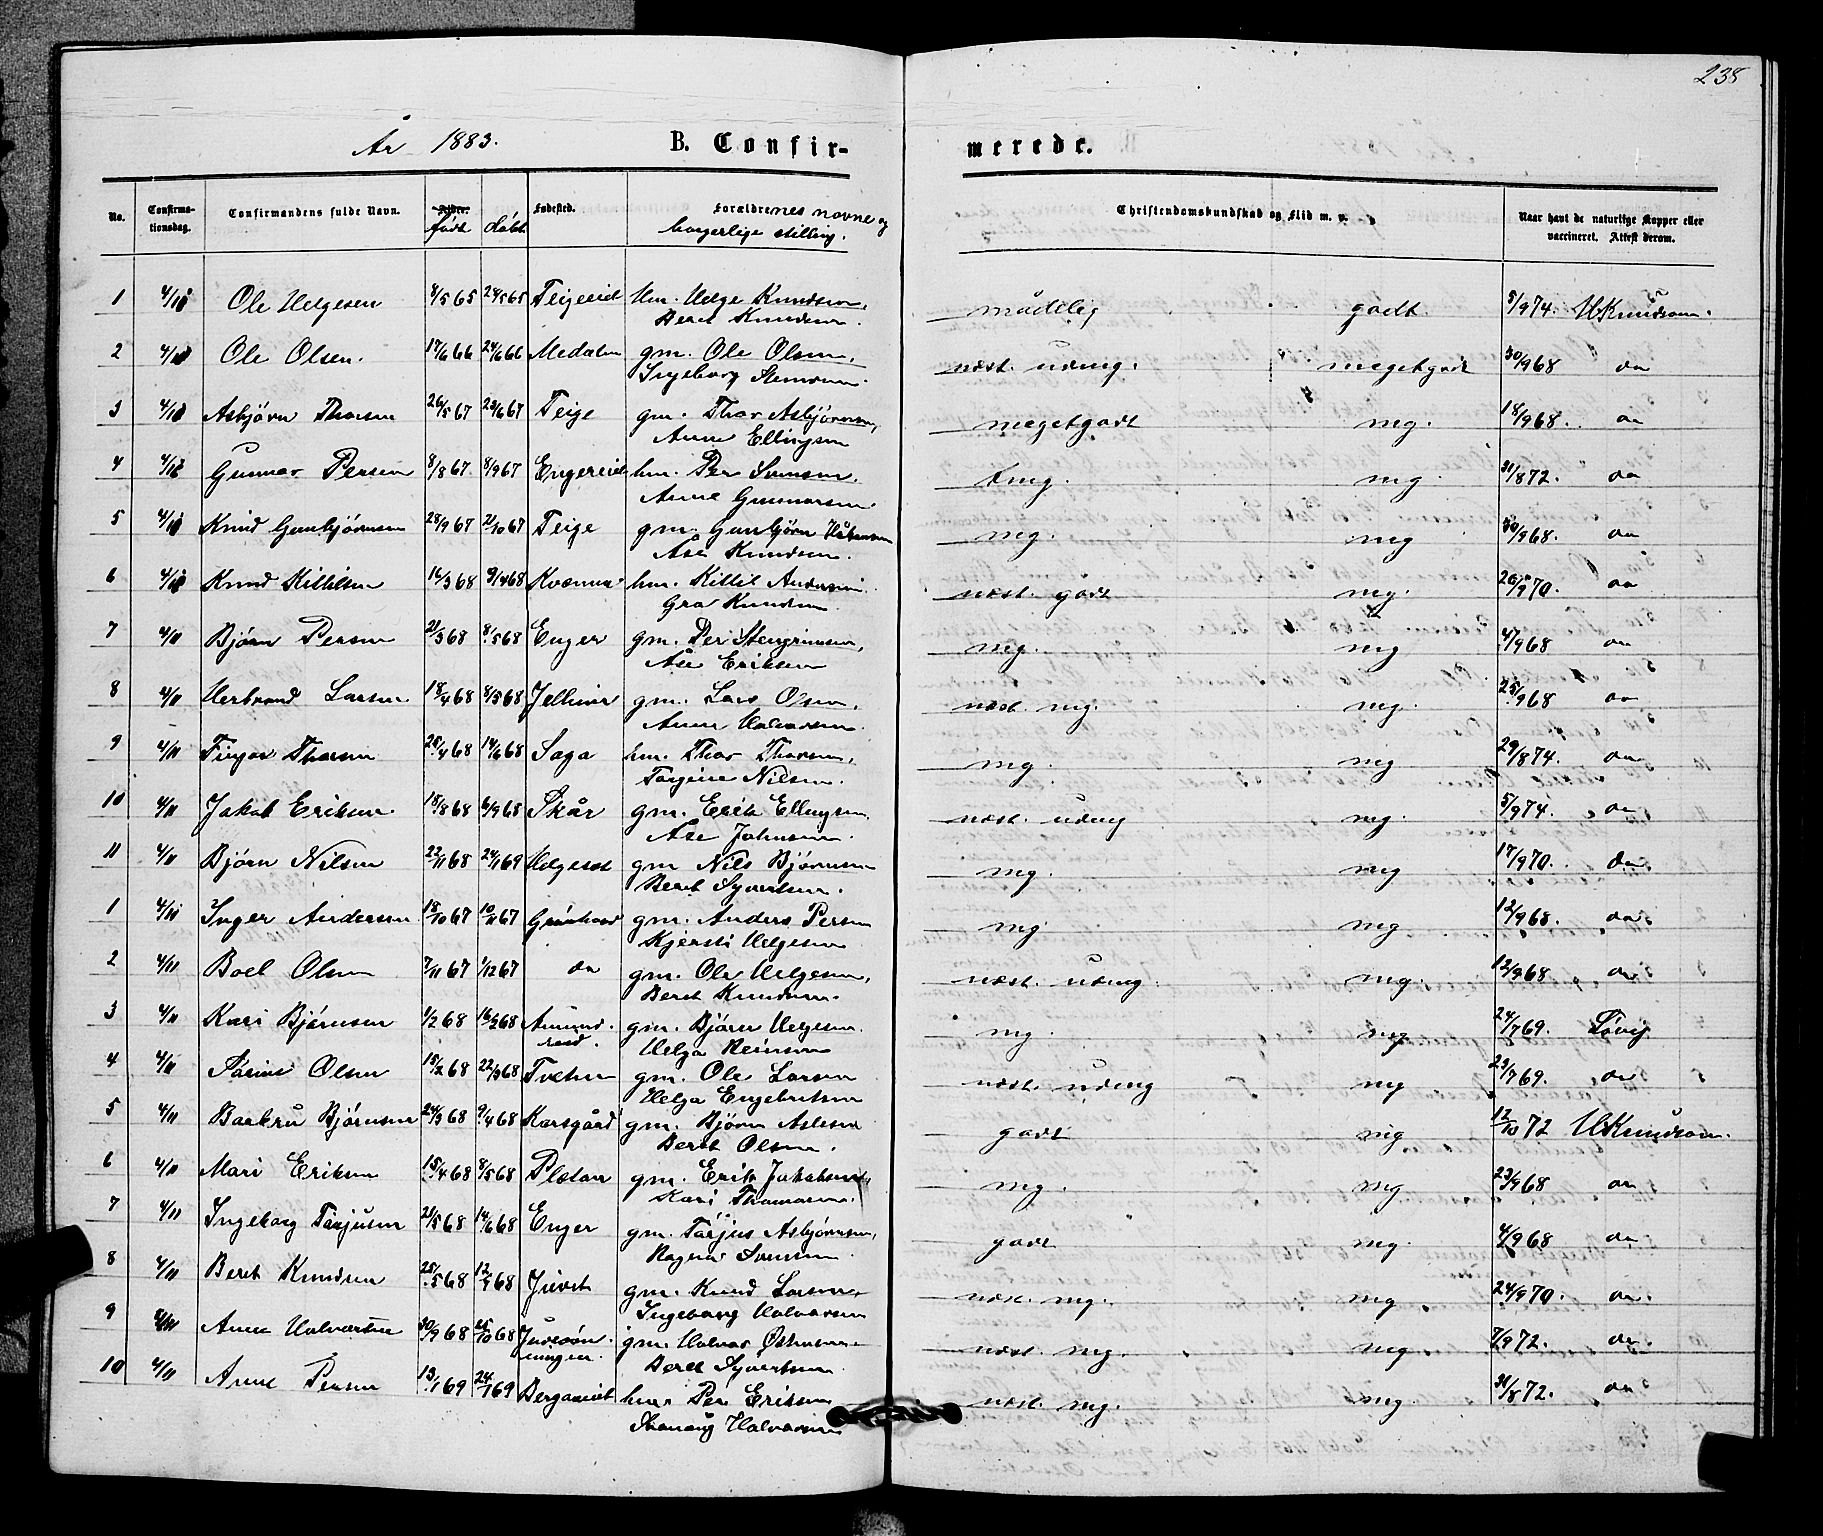 238
År 1883. B. Confirmerede.
No. Confirmationsdag. Confirmandens fulde Navn. Alder. født døbt Fødested. Forældrenes navne og borgerlige stilling. Christendomskundskab og Flid m. v. Naar havt de naturlige Kopper eller vaccineret. Attest derom.
1 4/11 Ole Helgesen 8/5 65 28/5 65 Teigeeiet hm. Helge Knudsen, mådelig godt 5/9 74. HKnudson.
Beret Knudsen.
2 4/11 Ole Olsen. 17/6 66 24/6 66 Medalen gm. Ole Olsen, næst. udmg. megetgodt 30/9 68 do
Ingeborg
3 4/11 Asbjörn Thorsen 26/5 67 23/6 67 Teige gm. Thor Asbjörnsen, megetgodt mg. 18/9 68. do
Anne Ellingsen
4 4/11 Gunnar Persen 8/8 67 8/9 67 Engereiet hm. Per Svensen. mg. mg. 31/8 72. do
Anne Gunnarsen
5 4/11 Knud Gunbjörnsen 28/9 67 2/10 67 Teige gm. Gunbjörn Håkensen mg. mg 30/9 68. do
Åse Knudsen.
6 4/11 Knud Kittilsen 16/3 68 9/4 68 Kvenna hm. Kittil Andersen næst. godt mg. 20/9 70. do
Gro Knudsen.
7 4/11 Björn Persen 21/3 68 8/5 68 Enger gm. Per Stengrimsen, mg. mg 4/9 68 do
Åse Eriksen
8 4/11 Herbrand Larsen 18/4 68 8/5 68 gm. Lars Olsen, næst. mg. mg. 25/9 68 do
Anne Halvorsen.
9 4/11 Thorsen 28/4 68 14/6 68 Saga hm. Thor Thorsen, mg. mg 29/8 74. do
Torgine Nilsen.
10 4/11 Jakob Eriksen 18/8 68 6/9 68 Skår gm. Erik Ellingsen. næst. udmg mg. 5/9 74. do
Åse Johnsen.
11 4/11 Björn Nilsen 22/11 68 24/1 69 Helgeset gm Nils Björnsen mg. mg 17/9 70. do
Beret Syvertsen.
1 4/11 Inger Andersen 18/10 67 10/11 67 gm. Anders Persen mg mg 12/9 68. do
Kjersti Helgesen
2 4/11 Boel Olsen 7/11 67 1/12 67 do gm. Ole Helgesen, næst. udmg. mg. 12/9 68 do
Beret Knudsen.
3 4/11 Kari Björnsen 1/2 68 16/2 68 Amundrud. gm. Björn Helgesen. mg. mg 24/7 69. Tövig
Helga Reinsen
4 4/11 Olsen 15/2 68 22/3 68 gm. Ole Larsen næst. udmg mg 23/7 69. do
Helga Engebritsen
5 4/11 Barbru Björnsen 24/3 68 9/4 68 Karsgård gm. Björn Aslesen godt mg 12/10 72 HKnudson.
Beret Olsen.
6 4/11 Mari Eriksen 15/4 68 8/5 68 Pletan gm. Erik Jakobsen mg. mg 23/9 68 do
Kari Thomasen.
7 4/11 Ingeborg Tarjusen 21/5 68 14/6 68 Enger gm. Tarjus Asbjörnsen, godt mg. 4/9 68 do
Ragna Svensen.
8 4/11 Beret Knudsen 25/5 68 12/7 68 Juvet gm. Knud Larsen, næst. mg. mg 24/9 70. do
Ingeborg Halvorsen
9 4/11 Anne Halvorsen 30/9 68 25/10 68 gm. Halvor Östensen. næst. mg. mg. 7/9 72. do
Beret Syvertsen.
10 4/11 Anne Persen 13/1 69 24/1 69 Bergaeiet hm. Per Eriksen næst. mg. mg. 31/8 72. do
Halvorsen